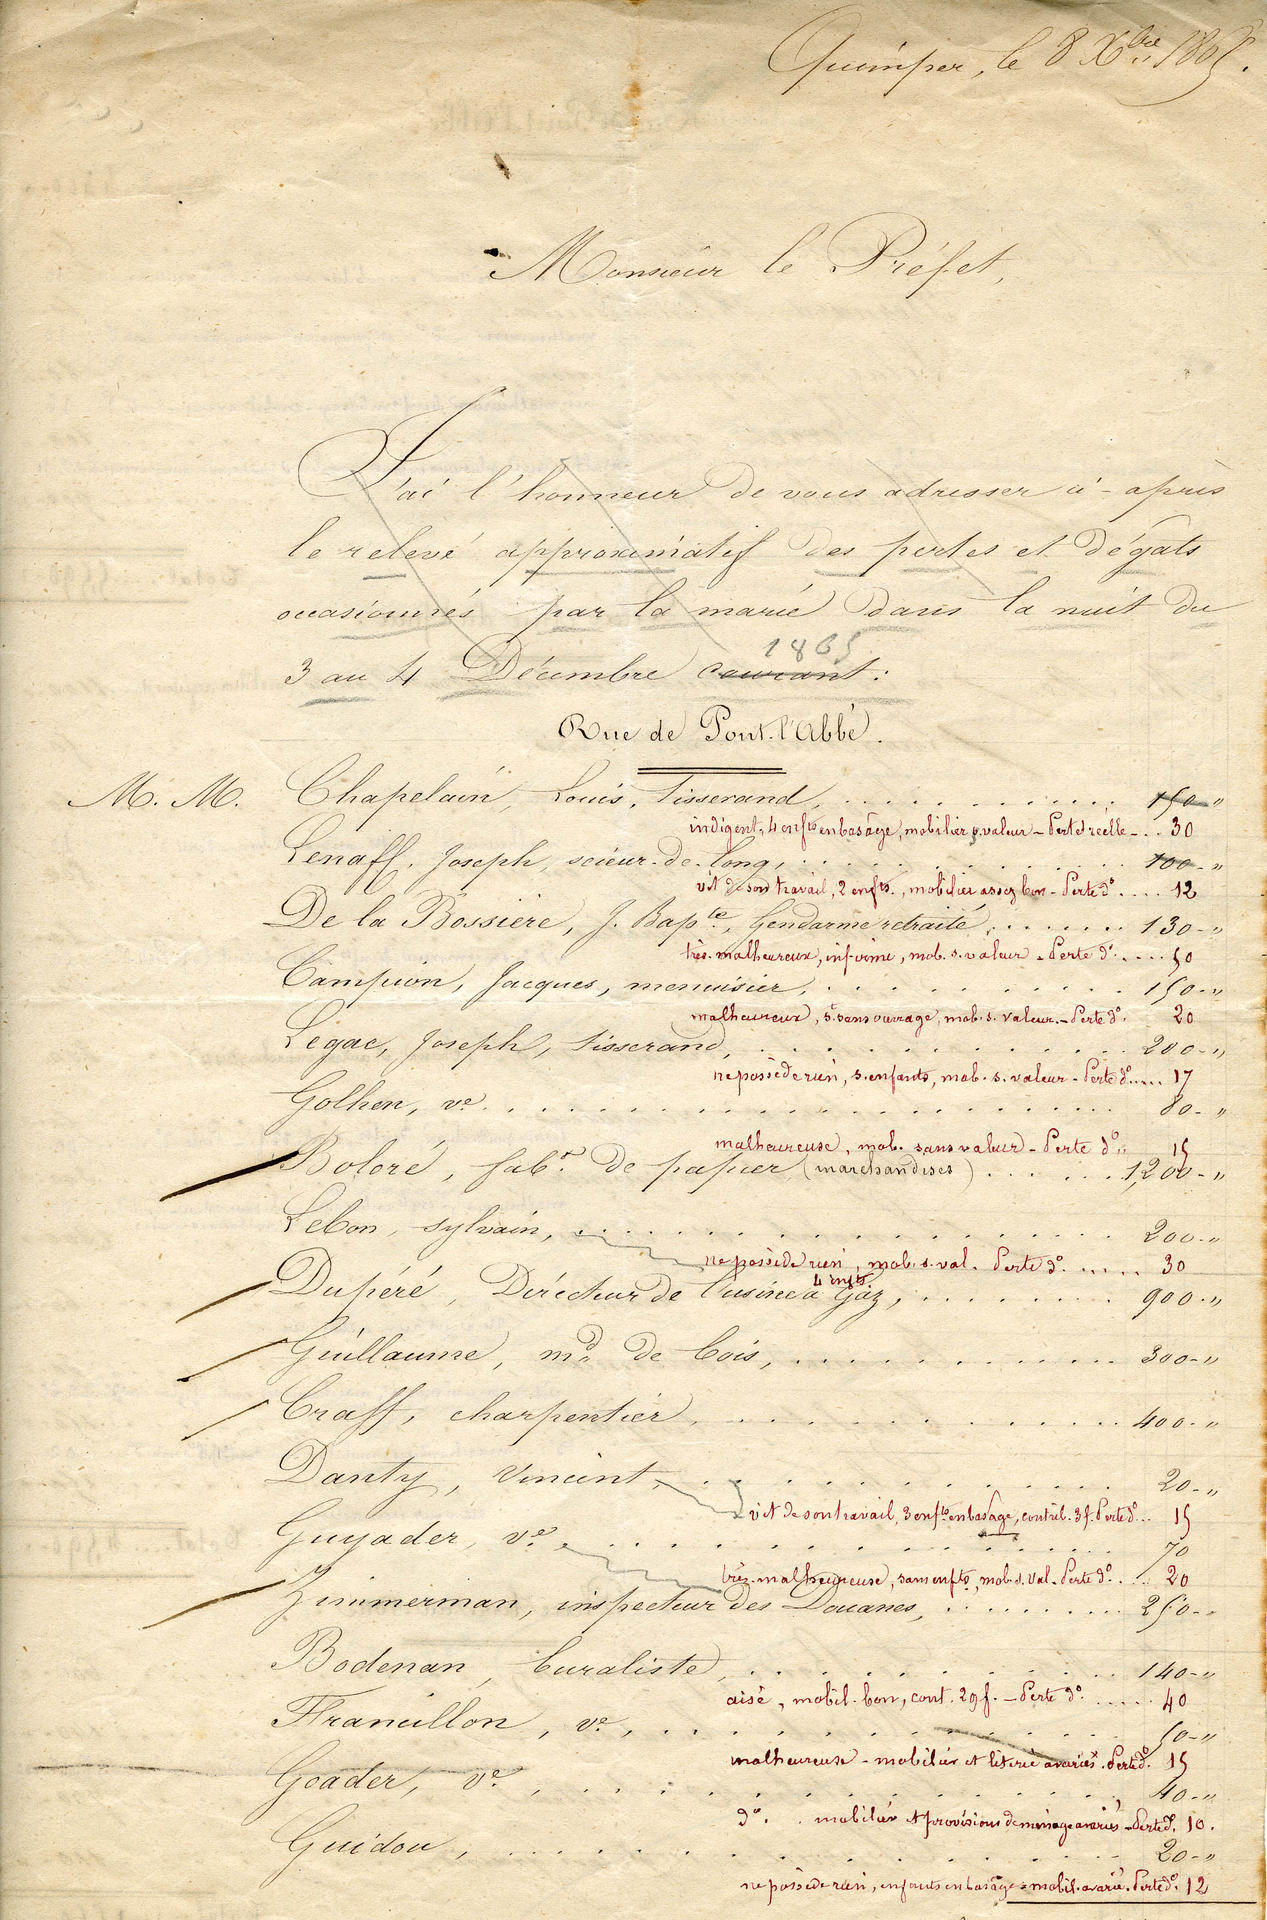 Quimper, le 8 Xbre 1865.
Monsieur le Préfet,
J'ai l'honneur de vous adresser ci-après
le relevé approximatif des pertes et dégats
occasionnés par la marée dans la nuit du
1865
3 au 4 Décembre courant:
Rue de Pont-l'Abbé.
M. M. Chapelain, Louis, Tisserand, 150 - "
indigent, 4 enfts en bas âge, mobilier s. valeur - Perte réelle - .. 30
Lenaff, Joseph, scieur-de-long, 100 - "
vit de son travail, 2 enfts., mobilier assez bon - Perte do .... 12
De la Bossière, J. Bapte, Gendarme retraité, 130 - "
très-malheureux, infirme, mob. s. valeur - Perte do .... 50
Campion, Jacques, menuisier, 150 - "
malheureux, s. sans ouvrage, mob. s. valeur. - Perte do. 20
Legac, Joseph, Tisserand, 200 - "
ne possède rien, s. enfants, mob. s. valeur - Perte do .... 17
Golhen, ve. 80 - "
malheureuse, mob. sans valeur - Perte do " 15
Boloré, fabt. de papier (marchandises) 1,200 - "
Lebon, sylvain, 200 - "
ne possède rien, mob. s. val. Perte do. 30
4 enfts
Dupéré, Directeur de l'usine à Gaz, 900 - "
Guillaume, md. de bois, 300 - "
Craff, charpentier, 400 - "
Danty, Vincent, 20 - "
vit de son travail, 3 enfts en bas âge, contrib. 3 f. Perte do ... 15
Guyader, ve. 70
très-malheureuse, sans enfts, mob. s. val - Perte do. 20
Zimmerman, inspecteur des Douanes, 250 - "
Bodenan, buraliste, 140 - "
aisé, mobil. bon, cont. 29 f. - Perte do. 40
Francillon, ve, 50 - "
malheureuse - mobilier et literie avariés. Perte do. 15
Goader, ve. 40 - "
do. mobilier et provisions de ménage avariés - Perte do. 10.
Guidou, 20 - "
ne possède rien, enfants en bas âge - mobil. avarié. Perte do. 12